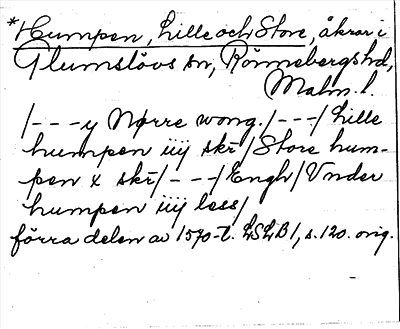 *Humpen, Lille och Store, åkrar i
Glumslövs sn, Rönnebergs hd,
Malm. l.
/---y Nørre wong./---/Lille
humpen iiij skr̄/Store hum-
pen x skr̄/---/Engh/Vnder
humpen iiij less/
förra delen av 1570-t. LSLB 1, s. 120. orig.